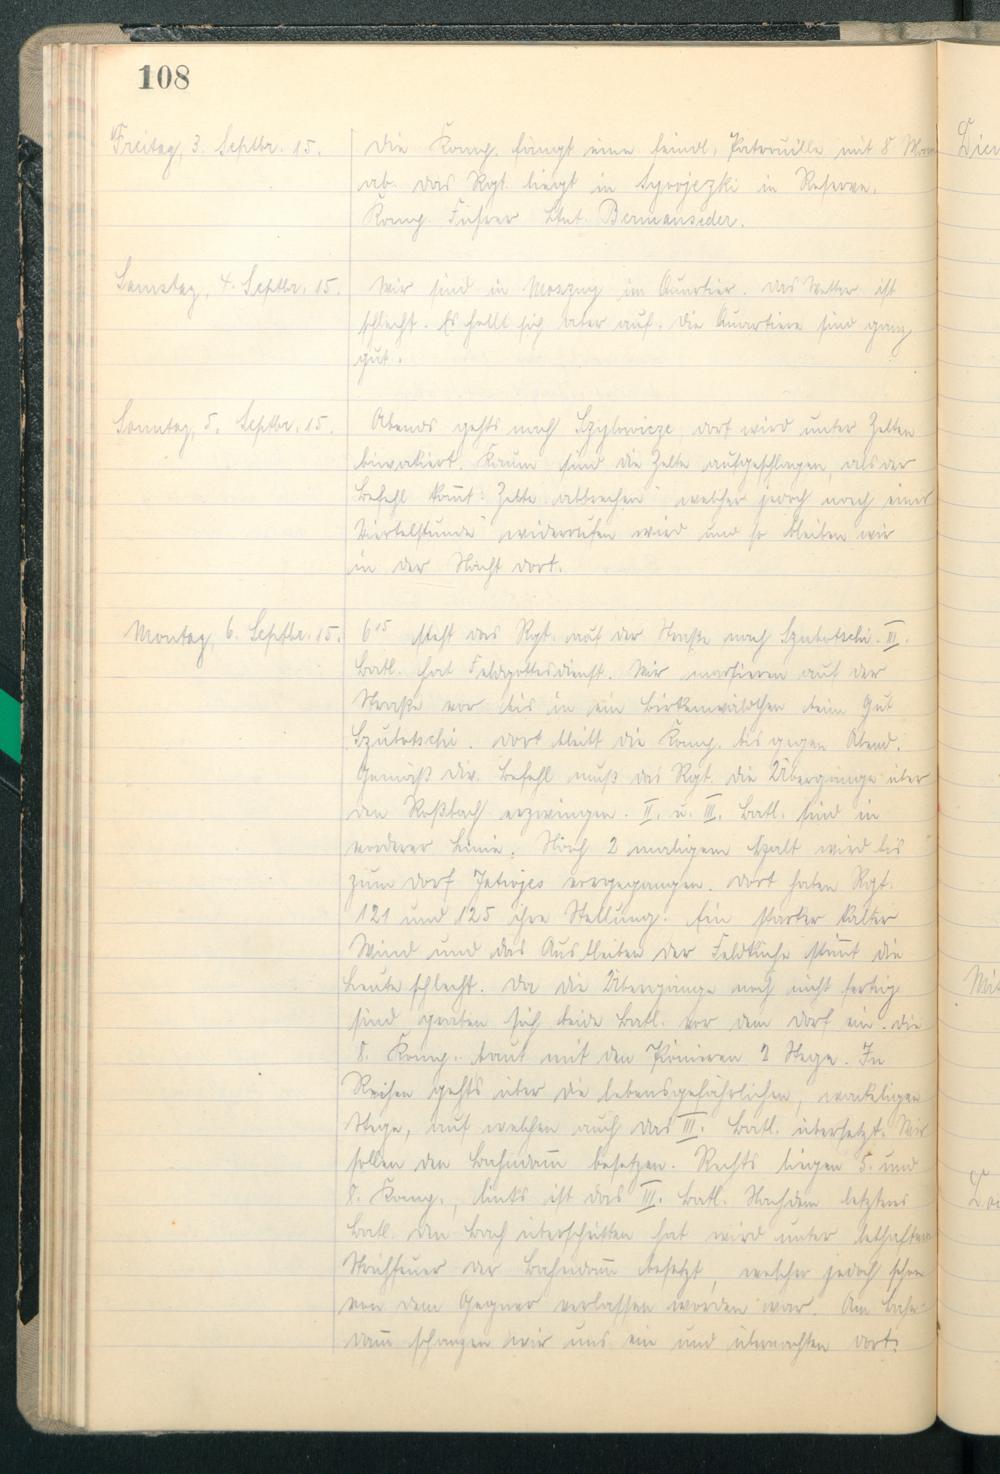 108
Freitag, 3. Septbr. 15.
Die Komp. fängt eine feindl. Patrouille mit 8 Mann
ab. Das Rgt. liegt in Syrojezki in Reserve.
Komp. Führer Ltnt. Bermanseder.
Samstag, 4. Septbr. 15.
Wir sind in Moszny im Quartier. Das Wetter ist
schlecht. Es hellt sich aber auf. Die Quartiere sind ganz
gut.
Sonntag, 5. Septbr. 15.
Abends gehts nach Szylowicze, dort wird unter Zelten
biwakiert. Kaum sind die Zelte aufgeschlagen, als der
Befehl kom̄t: Zelte abbrechen" welcher jedoch nach einer
Viertelstunde widerrufen wird und so bleiben wir
in der Nacht dort.
Montag, 6. Septbr. 15.
6¹⁵ steht das Rgt. auf der Straße nach Szubotschi. III.
Batl. hat Feldgottesdienst. Wir marschieren auf der
Straße vor bis in ein Birkenwäldchen beim Gut
Szubotschi. Dort bleibt die Komp. bis gegen Abend.
Gemäß Div. Befehl muß das Rgt. die Übergänge über
den Roßbach erzwingen. II. u. III. Batl. sind in
vorderer Linie. Nach 2 maligem Halt wird bis
zum Dorf vorgegangen. Dort haben Rgt.
121 und 125 ihre Stellung. Ein starker kalter
Wind und das Ausbleiben der Feldküche stim̄t die
Leute schlecht. Da die Übergänge noch nicht fertig
sind graben sich beide Batl. vor dem Dorf ein. Die
8. Komp. baut mit den Pionieren 2 Stege. In
Reihen gehts über die lebensgefährlichen, wackligen
Stege, auf welchen auch das III. Batl. übersetzt. Wir
sollen den Bahndam̄ besetzen. Rechts liegen 5. und
8. Komp., links ist das III. Batl. Nachdem letzteres
Batl. den Bach überschritten hat wird unter lebhaftem
Streufeuer der Bahndam̄ besetzt, welcher jedoch schon
von dem Gegner verlassen worden war. Am Bahn-
dam̄ schanzen wir uns ein und übernachten dort.